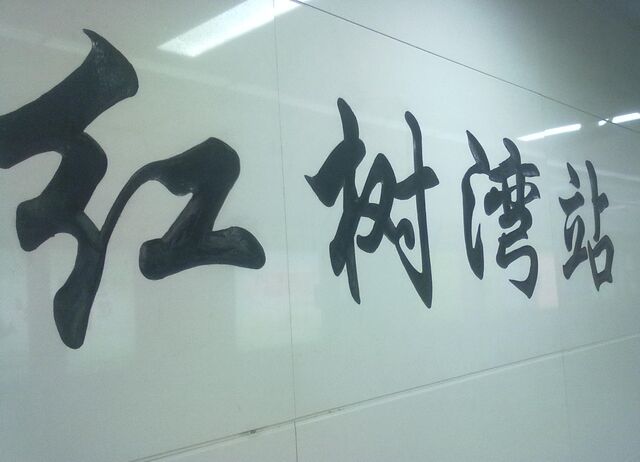 红树湾站